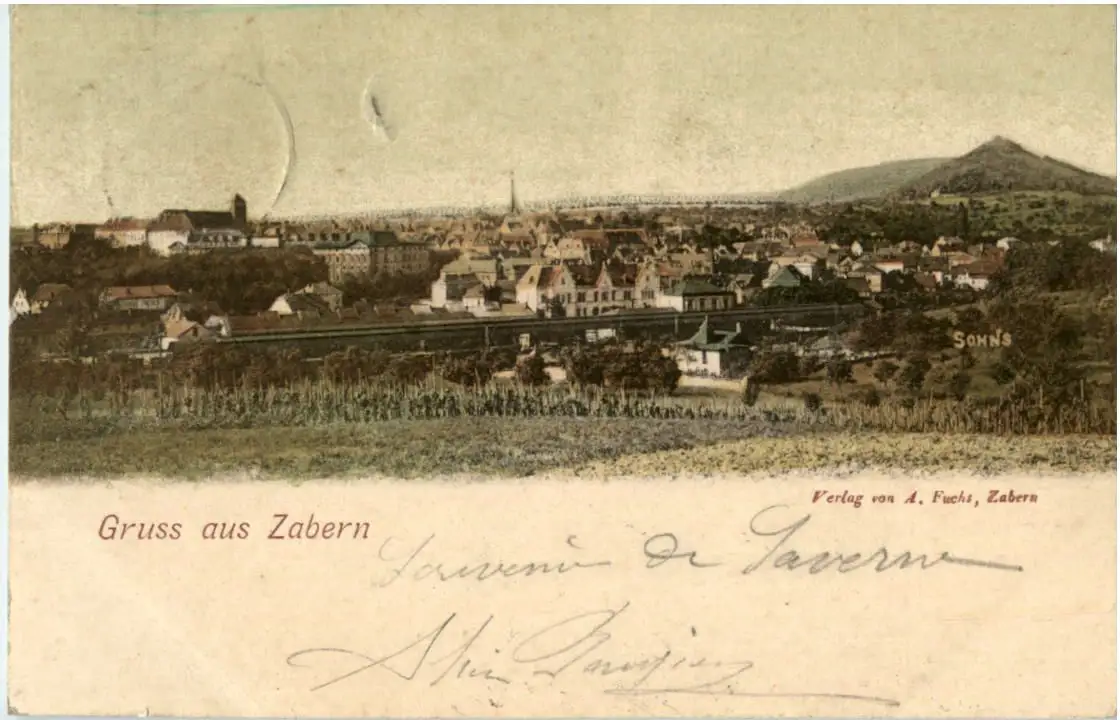 SOHN'S
Verlag von A. Fuchs, Zabern
Gruss aus Zabern
Souvenir de Saverne